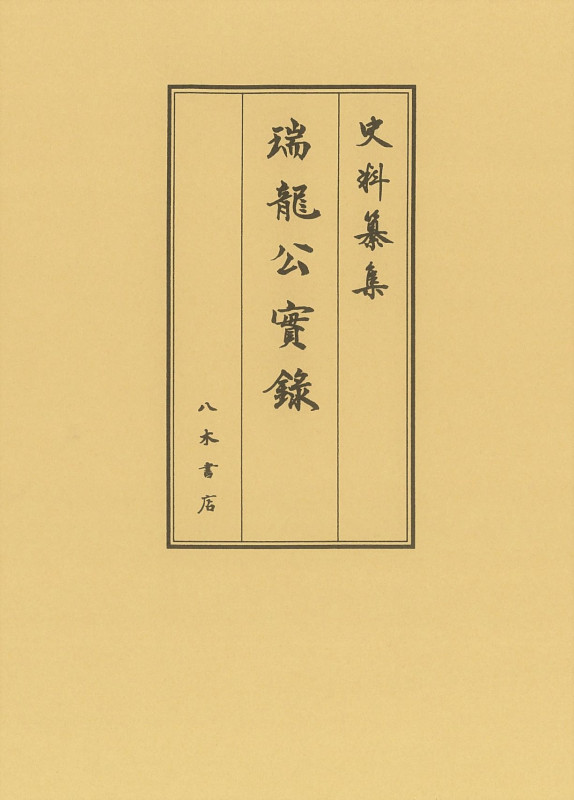 史料纂集
瑞龍公實錄
八木書店